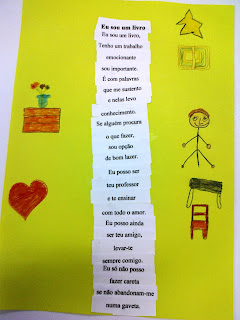 Eu sou um livro
Eu sou um livro,
Tenho um trabalho
emocionante
sou importante.
É com palavras
que me sustento
e nelas levo
conhecimento.
Se alguém procura
o que fazer,
sou opção
de bom lazer.
Eu posso ser
teu professor
e te ensinar
com todo o amor.
Eu posso ainda
ser teu amigo,
levar-te
sempre comigo.
Eu só não posso
fazer careta
se não abandonam-me
numa gaveta.